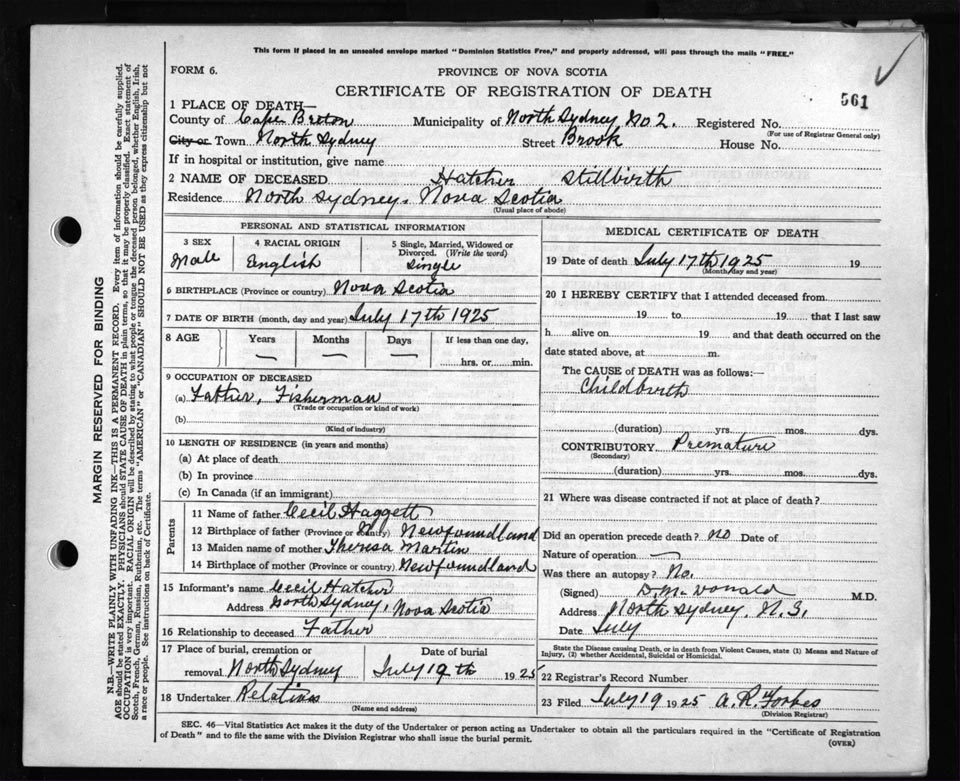 This form if placed in an unsealed envelope marked "Dominion Statistics Free," and properly addressed, will pass through the mails "FREE."
FORM 6.
PROVINCE OF NOVA SCOTIA
CERTIFICATE OF REGISTRATION OF DEATH
561
1 PLACE OF DEATH—
County of Cape Breton Municipality of North Sydney No 2. Registered No.
(For use of Registrar General only)
City or Town North Sydney Street Brook House No.
If in hospital or institution, give name
2 NAME OF DECEASED Hatcher Stillbirth
Residence North Sydney. Nova Scotia
(Usual place of abode)
PERSONAL AND STATISTICAL INFORMATION
3 SEX 4 RACIAL ORIGIN 5 Single, Married, Widowed or Divorced. (Write the word)
Male English Single
6 BIRTHPLACE (Province or country) Nova Scotia
7 DATE OF BIRTH (month, day and year) July 17th 1925
8 AGE Years Months Days If less than one day,
— — — hrs. or min.
9 OCCUPATION OF DECEASED
(a) Father, Fisherman
(Trade or occupation or kind of work)
(b)
(Kind of industry)
10 LENGTH OF RESIDENCE (in years and months)
(a) At place of death
(b) In province
(c) In Canada (if an immigrant)
Parents
11 Name of father Cecil Haggett
12 Birthplace of father (Province or country) Newfoundland
13 Maiden name of mother Theresa Martin
14 Birthplace of mother (Province or country) Newfoundland
15 Informant's name Cecil Hatcher
Address North Sydney, Nova Scotia
16 Relationship to deceased Father
17 Place of burial, cremation or removal North Sydney Date of burial July 19th 1925
18 Undertaker Relations
(Name and address)
MEDICAL CERTIFICATE OF DEATH
19 Date of death July 17th 1925 19
(Month, day and year)
20 I HEREBY CERTIFY that I attended deceased from
19 to 19 that I last saw
h alive on 19 and that death occurred on the
date stated above, at m.
The CAUSE of DEATH was as follows:—
Childbirth
(duration) yrs. mos. dys.
CONTRIBUTORY Premature
(Secondary)
(duration) yrs. mos. dys.
21 Where was disease contracted if not at place of death?
Did an operation precede death? no Date of
Nature of operation —
Was there an autopsy? No.
(Signed) D. McDonald M.D.
Address North Sydney, N.S.
Date July
State the Disease causing Death, or in death from Violent Causes, state (1) Means and Nature of
Injury, (2) whether Accidental, Suicidal or Homicidal.
22 Registrar's Record Number
23 Filed July 19 1925 A. R. Forbes
(Division Registrar)
SEC. 46—Vital Statistics Act makes it the duty of the Undertaker or person acting as Undertaker to obtain all the particulars required in the "Certificate of Registration
of Death" and to file the same with the Division Registrar who shall issue the burial permit.
(OVER)
MARGIN RESERVED FOR BINDING
N.B.—WRITE PLAINLY WITH UNFADING INK—THIS IS A PERMANENT RECORD. Every item of information should be carefully supplied.
AGE should be stated EXACTLY. PHYSICIANS should STATE CAUSE OF DEATH in plain terms, so that it may be properly classified. Exact statement of
OCCUPATION is very important. RACIAL ORIGIN will be described by stating to what people or tongue the deceased person belonged, whether English, Irish,
Scotch, French, German, Russian, Ruthenian, etc. The terms "AMERICAN" or "CANADIAN" SHOULD NOT BE USED as they express citizenship but not
a race or people. See instructions on back of Certificate.